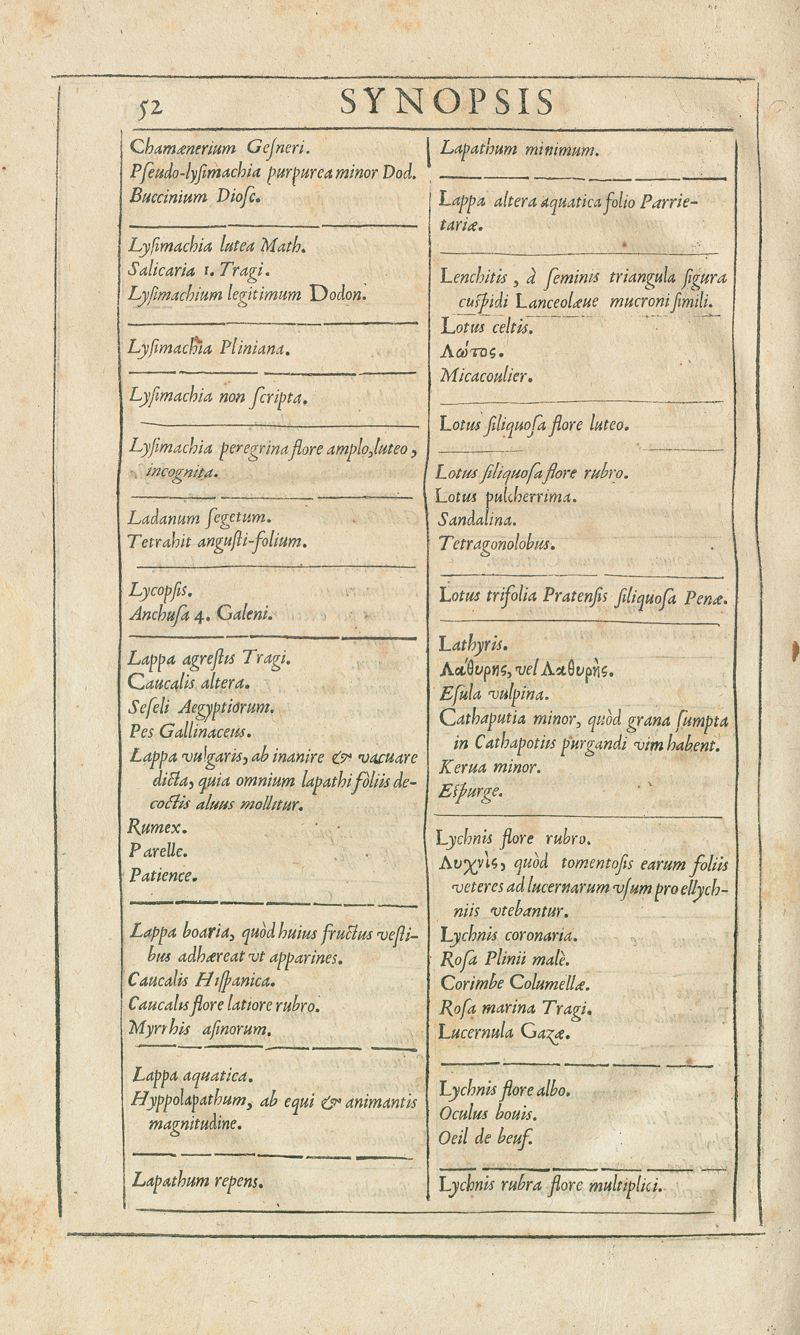 52
SYNOPSIS
Chamænerium Geſneri.
Pſeudo-lyſimachia purpurea minor Dod.
Buccinium Dioſc.
Lyſimachia lutea Math.
Salicaria 1. Tragi.
Lyſimachium legitimum Dodon.
Lyſimachia Pliniana.
Lyſimachia non ſcripta.
Lyſimachia peregrina flore amplo, luteo,
incognita.
Ladanum ſegetum.
Tetrahit anguſti-folium.
Lycopſis.
Anchuſa 4. Galeni.
Lappa agreſtis Tragi.
Caucalis altera.
Seſeli Aegyptiorum.
Pes Gallinaceus.
Lappa vulgaris, ab inanire & vacuare
dicta, quia omnium lapathi foliis de-
coctis aluus mollitur.
Rumex.
Parelle.
Patience.
Lappa boaria, quòd huius fructus veſti-
bus adhæreat vt apparines.
Caucalis Hiſpanica.
Caucalis flore latiore rubro.
Myrrhis aſinorum.
Lappa aquatica.
Hyppolapathum, ab equi & animantis
magnitudine.
Lapathum repens.
Lapathum minimum.
Lappa altera aquatica folio Parrie-
tariæ.
Lenchitis, à ſeminis triangula figura
cuſpidi Lanceolæue mucroni ſimili.
Lotus celtis.
Λώτος.
Micacoulier.
Lotus ſiliquoſa flore luteo.
Lotus ſiliquoſa flore rubro.
Lotus pulcherrima.
Sandalina.
Tetragonolobus.
Lotus trifolia Pratenſis ſiliquoſa Penæ.
Lathyris.
Λάθυρης, vel Λαθυρὴς.
Eſula vulpina.
Cathaputia minor, quòd grana ſumpta
in Cathapotiis purgandi vim habent.
Kerua minor.
Eſpurge.
Lychnis flore rubro.
Λυχνὶς, quòd tomentoſis earum foliis
veteres ad lucernarum vſum pro ellych-
niis vtebantur.
Lychnis coronaria.
Roſa Plinii malè.
Corimbe Columellæ.
Roſa marina Tragi.
Lucernula Gazæ.
Lychnis flore albo.
Oculus bouis.
Oeil de beuf.
Lychnis rubra flore multiplici.